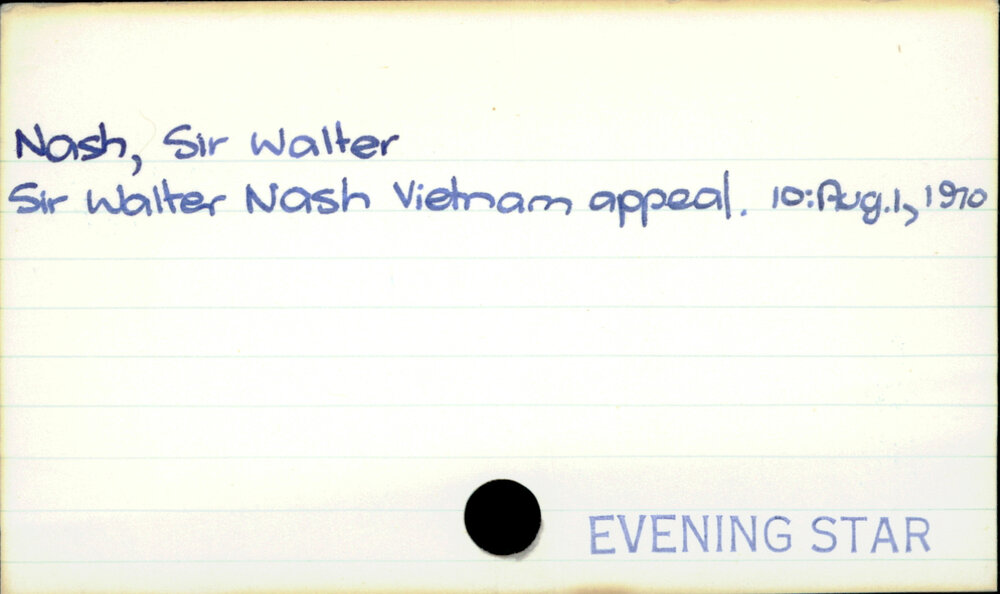 Nash, Sir Walter
Sir Walter Nash Vietnam appeal. 10:Aug.1, 1970
EVENING STAR